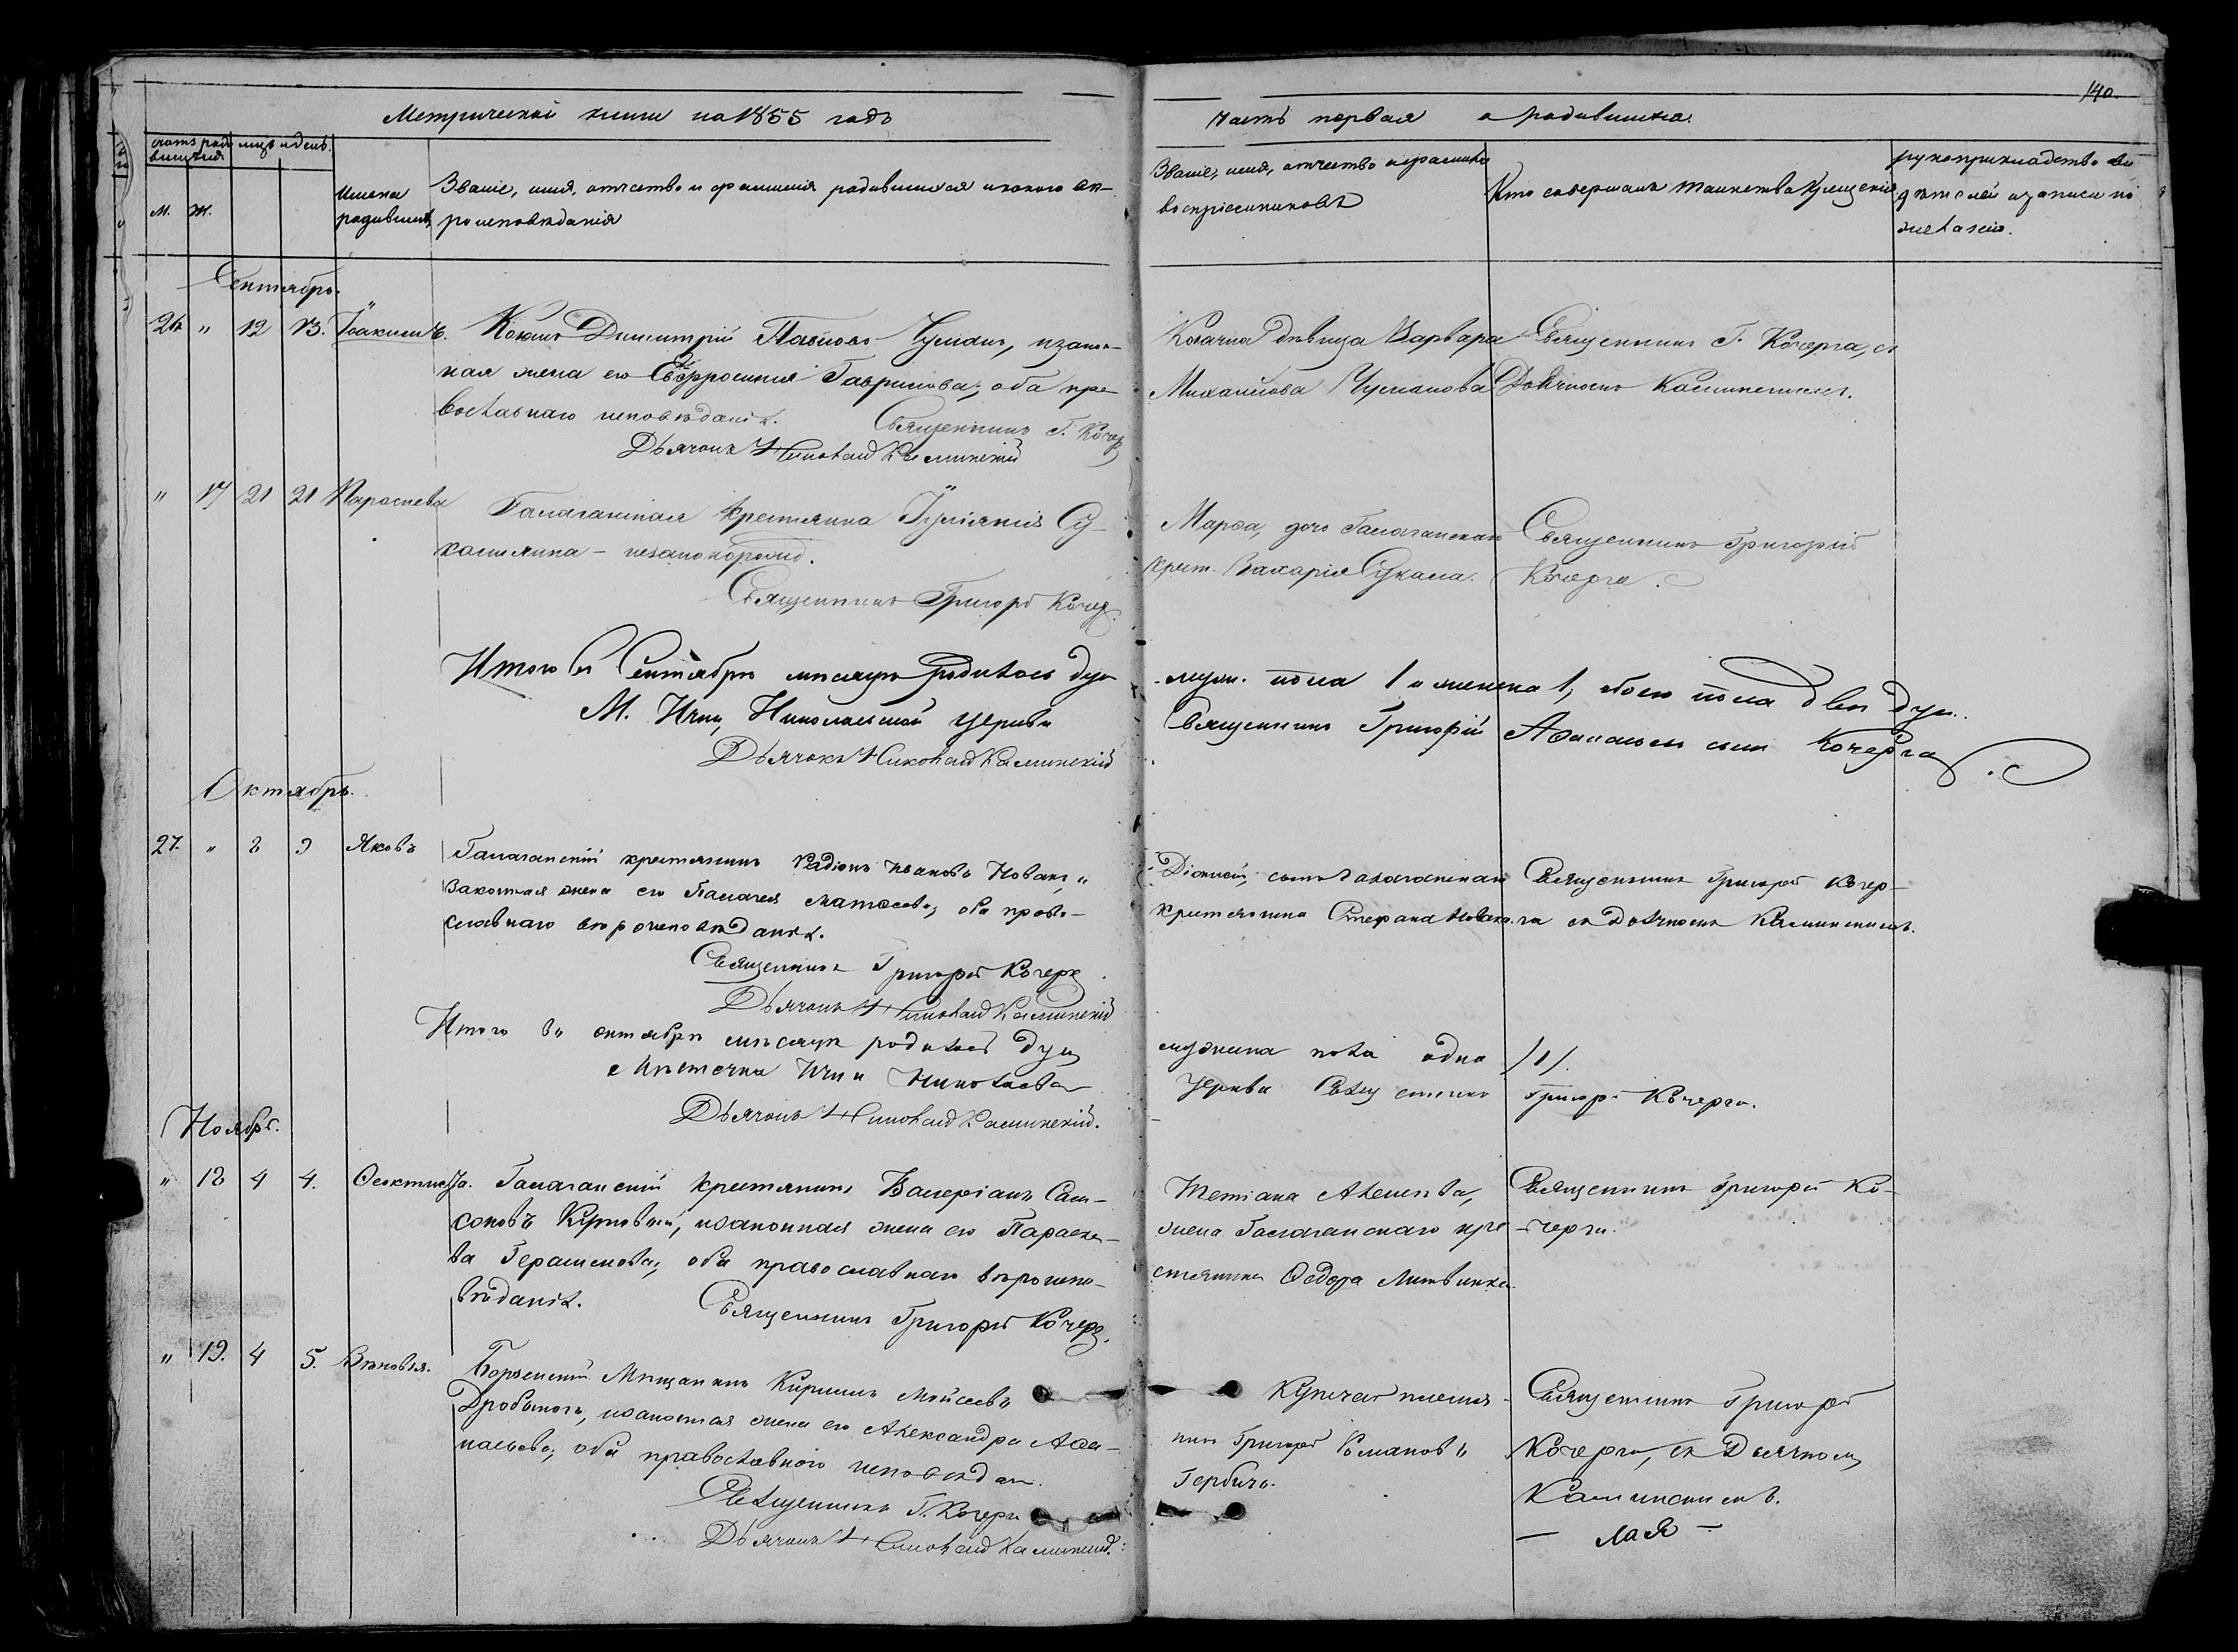 Метрической книги на 1855 годъ
часть первая о родившихся.
140.
счетъ родившихся
мцъ и день.
М.
Ж.
Имена родившихъ
Званіе, имя, отчество и фамилія родившихся и какого вѣроисповѣданія
Званіе, имя, отчество и фамилія воспріемниковъ
Кто совершалъ таинство Крещенія
рукоприкладство свидѣтелей о записи по желанію.
Сентябрь.
26 " 12 13. Іоакимъ.
Козакъ Димитрій Павловъ Чумакъ, и закон-
ная жена его Евфросинія Гаврилова; оба пра-
вославнаго исповѣданія.
Священникъ Г. Кочер
Дьячокъ Николай Калинскій
Козачка дѣвица Варвара
Михайлова Чумакова
Священникъ Г. Кочерга, съ
Дьячкомъ Калинскимъ.
" 17 21 21 Параскева
Галаганская крестьянка Іуліянія Су-
незаконорожд.
Священникъ Григорій Кочер.
Марѳа, дочь Галаганскаго
крест. Захарія
Священникъ Григорій
Кочерга.
Итого въ Сентябрѣ мѣсяцѣ родилось душъ
муж. пола 1 и женска 1, обоего пола двѣ душ.
М. Ични, Николаевской церкви
Священникъ Григорій Аѳанасьевъ сынъ Кочерга.
Дьячокъ Николай Калинскій
Октябрь.
27. " 8 9 Яковъ
Галаганскій крестьянинъ Радіонъ Ивановъ Новакъ, и
законная жена его Палагея Матѳеева; оба право-
славнаго вѣроисповѣданія.
Священникъ Григорій Кочерг.
Дьячокъ Николай Калинскій
Діонисій, сынъ Галаганскаго
Крестьянина Стефана Новака.
Священникъ Григорій Кочер-
га съ Дьячкомъ Калинскимъ.
Итого въ октябрѣ мѣсяцѣ родилось душ
мужеска пола одна /1/.
Мѣстечка Ични Николаевск
Церкви Священникъ Григор. Кочерга.
Дьячокъ Николай Калинскій.
Ноябрь.
" 18 4 4. Ѳеоктиста.
Галаганскій крестьянинъ Валеріанъ Сам-
соновъ, и законная жена его Параске-
ва Герасимова, оба православнаго вѣроиспо-
вѣданія.
Священникъ Григорій Кочерг.
Тетіана Алексѣева,
жена Галаганскаго кре-
стьянина Ѳедора Литвинка.
Священникъ Григорій Ко-
черга.
" 19. 4 5. Зѣновія.
Борзенскій Мѣщанинъ Кириллъ Мойсеевъ
и законная жена его Александра Аѳа-
насьева; оба православнаго исповѣдан.
Священникъ Г. Кочерга
Дьячокъ Николай Калинскій.
Григорій Романовъ
Гербичъ.
Священникъ Григорій
Кочерга, съ Дьячкомъ
Калинскимъ.